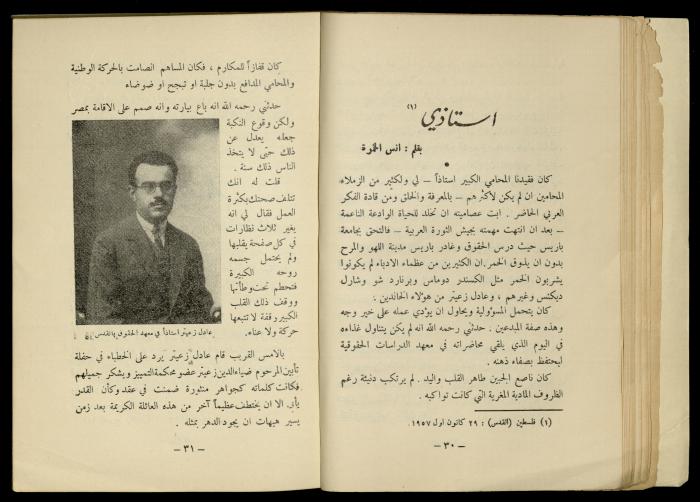 استاذي (١)
بقلم : انس الخمرة
كان فقيدنا المحامي الكبير استاذاً – لي ولكثير من الزملاء
المحامين ان لم يكن لأكثرهم – بالمعرفة والخلق ومن قادة الفكر
العربي الحاضر . ابت عصاميته ان تخلد للحياة الوادعة الناعمة
– بعد ان انتهت مهمته بجيش الثورة العربية – فالتحق بجامعة
باريس حيث درس الحقوق وغادر باريس مدينة اللهو والمرح
بدون ان يذوق الخمر. ان الكثيرين من عظماء الادباء لم يكونوا
يشربون الخمر مثل الكسندر دوماس وبرنارد شو وشارل
ديكنس وغيرهم ، وعادل زعيتر من هؤلاء الخالدين .
كان يتحمل المسؤولية ويحاول ان يؤدي عمله على خير وجه
وهذه صفة المبدعين . حدثني رحمه الله انه لم يكن يتناول غذاءه
في اليوم الذي يلقي محاضراته في معهد الدراسات الحقوقية
ليحتفظ بصفاء ذهنه .
كان ناصع الجبين طاهر القلب واليد . لم يرتكب دنيئة رغم
الظروف المادية المغرية التي كانت تواكبه .
(١) فلسطين (القدس) : ٢٩ كانون اول ١٩٥٧ .
– ٣٠ –
كان قفازاً للمكارم ، فكان المساهم الصامت بالحركة الوطنية
والمحامي المدافع بدون جلبة او تبجح او ضوضاء
حدثني رحمه الله انه باع بيارته وانه صمم على الاقامة بمصر
ولكن وقوع النكبة
جعله يعدل عن
ذلك حتى لا يتخذ
الناس ذلك سنة .
قلت له انك
تتلف صحتك بكثرة
العمل فقال لي انه
يغير ثلاث نظارات
في كل صفحة يقلبها
ولم يحتمل جسمه
روحه الكبيرة
فتحطم تحت وطأتها
ووقف ذلك القلب
الكبير وقفة لا تتبعها
حركة ولا عناء.
عادل زعيتر استاذاً في معهد الحقوق بالقدس
بالامس القريب قام عادل زعيتر يرد على الخطباء في حفلة
تأبين المرحوم ضياء الدين زعيتر عضو محكمة التمييز ويشكر جميلهم
فكانت كلماته كجواهر منثورة ضمنت في عقد وكأن القدر
يأبى الا ان يختطف عظيماً آخر من هذه العائلة الكريمة بعد زمن
يسير هيهات ان يجود الدهر بمثله .
– ٣١ –